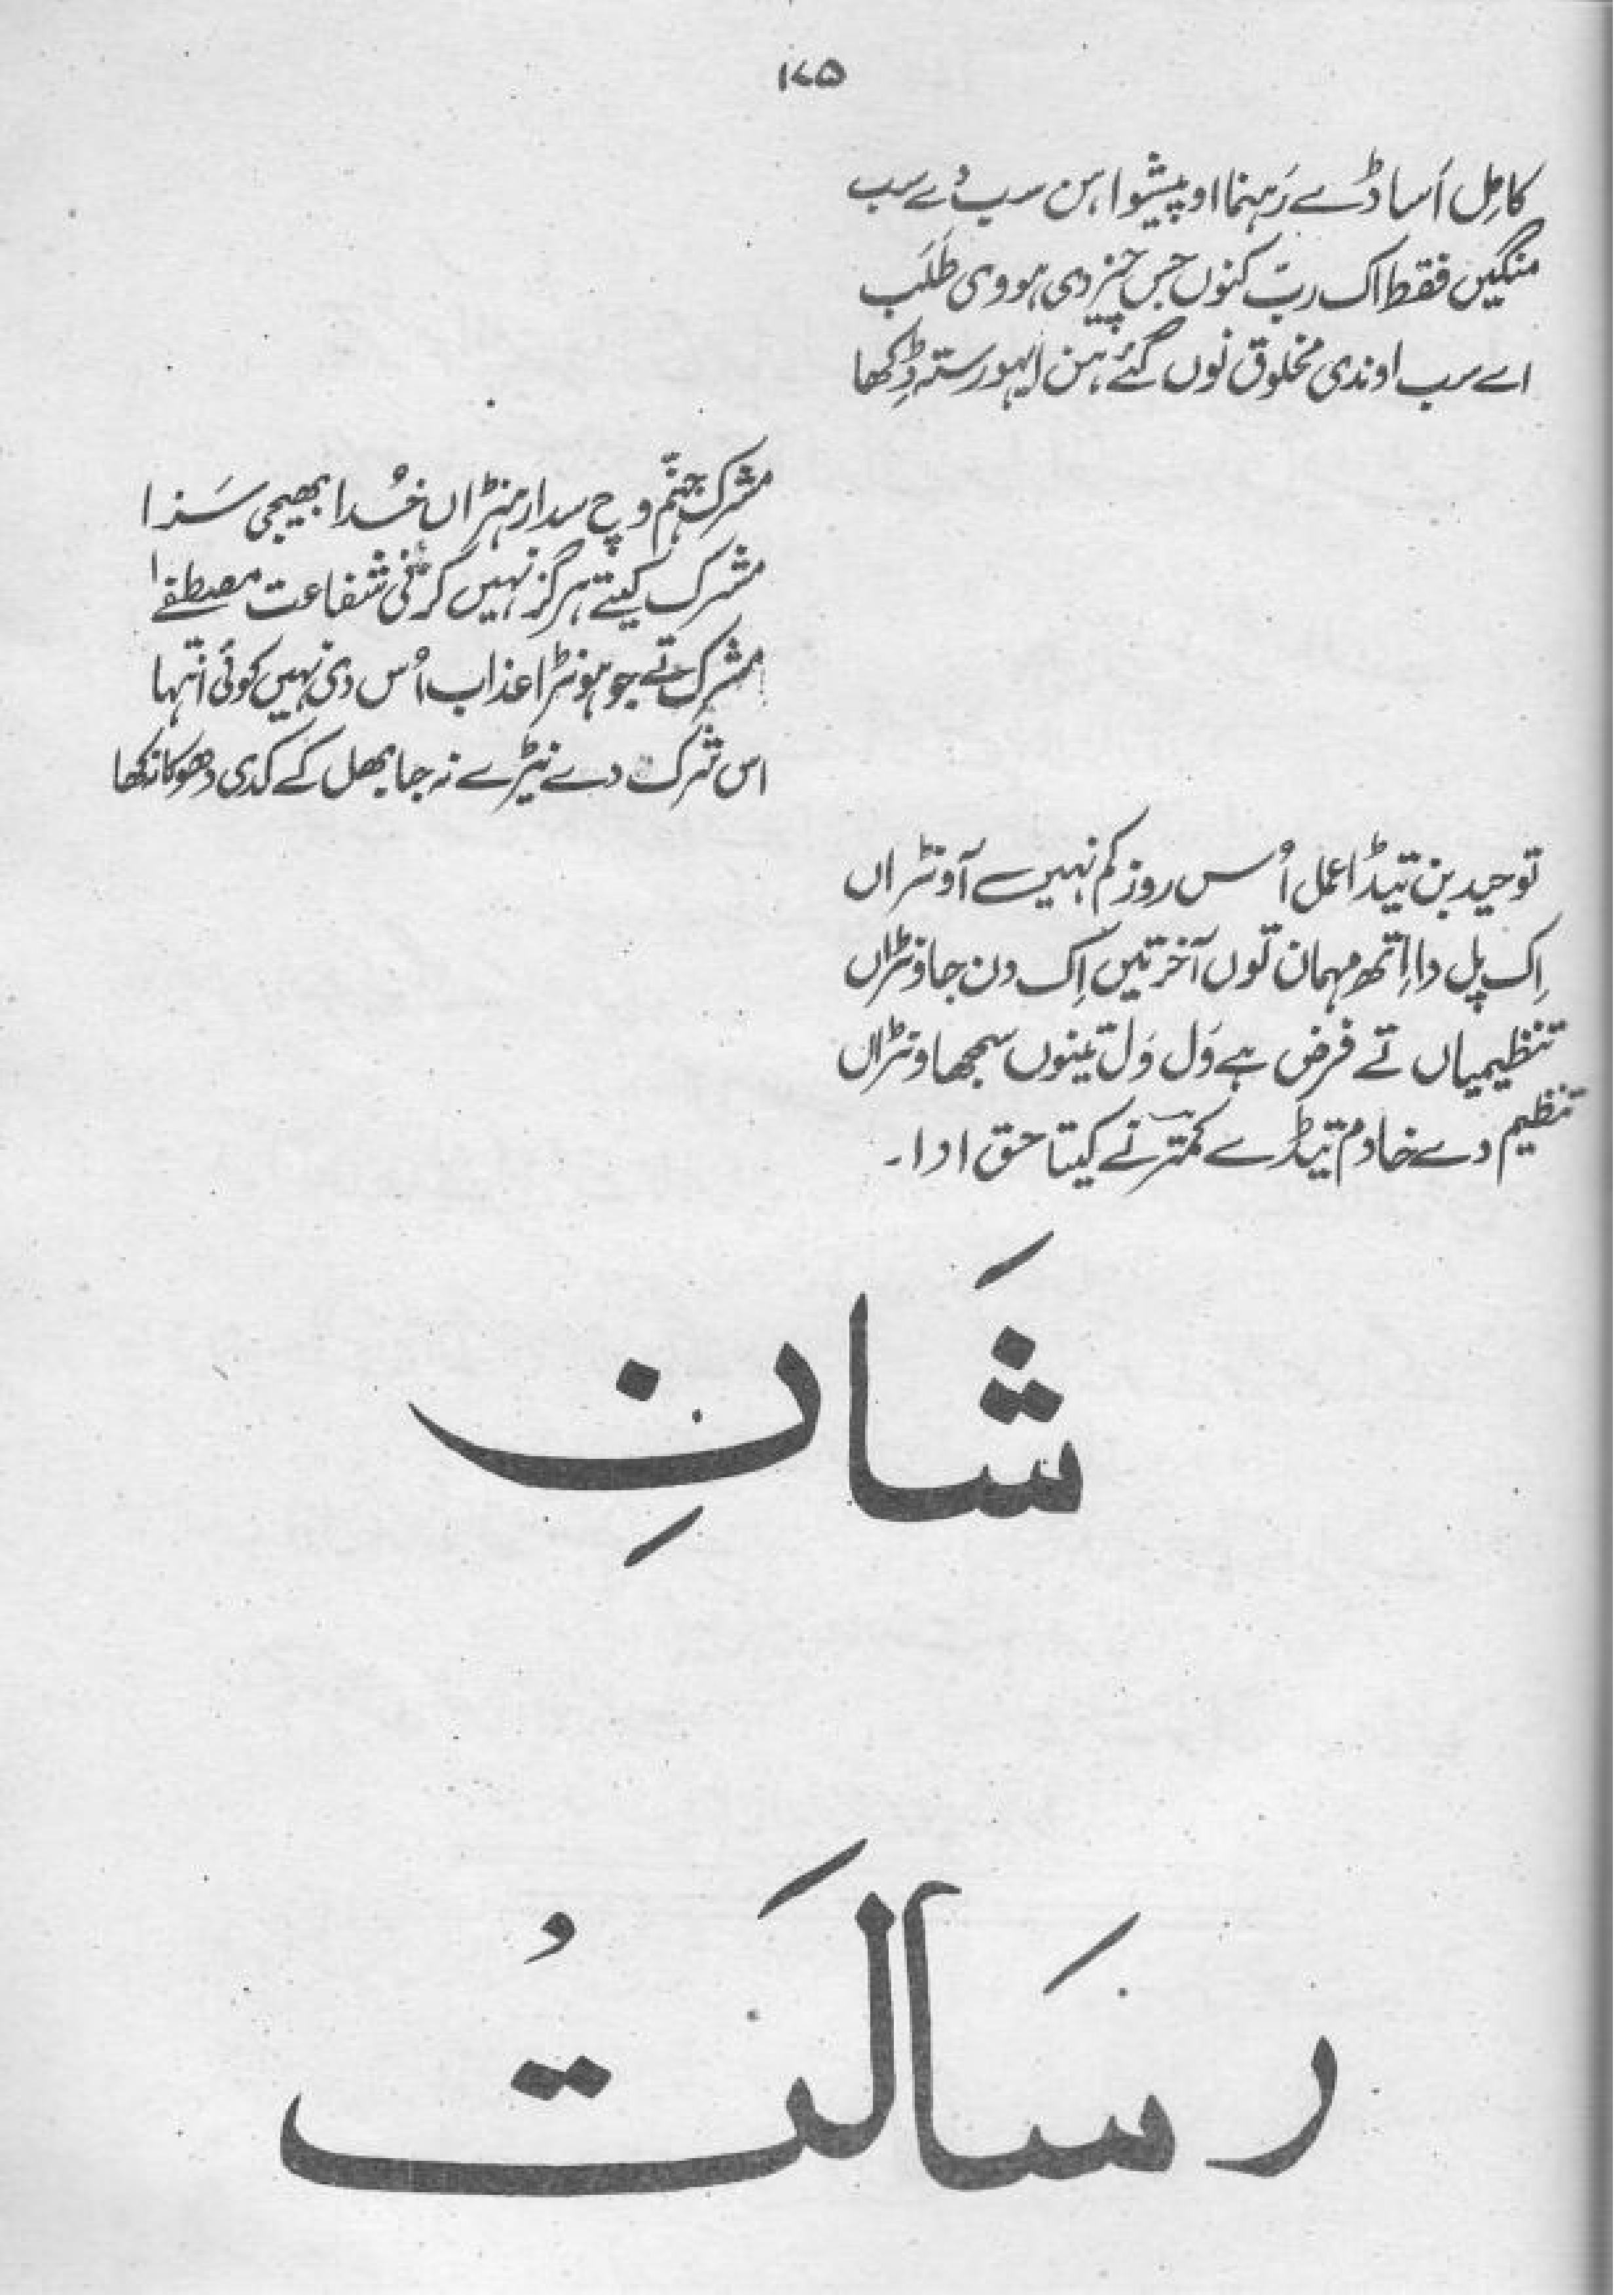 ۱۷۵
کامِل اَساڈے رَہنما او پیشوا ہن سب دے سب
منگیں فقط اک ربّ کنوں جس چیز دی ہووی طَلَب
اے سب اوندی مخلوق نوں گئے ہن ایہو رستہ ڈِکھا
مشرک جہنّم وچ سدا رہنڑاں خُدا بھیجی سَزا
مشرک کیتے ہرگز نہیں کرنی شفاعت مصطفےٰ
مشرک تے جو ہونڑا عذاب اُس دی نہیں کوئی انتہا
اس شرک دے نیڑے نہ جا بھل کے کدی دھوکا نہ کھا
توحید بن تیڈا عمل اُس روز کم نہیں سے آونڑاں
اِک پل دا اِتھ مہمان توں آخر تیں اِک دن جاونڑاں
تنظیمیاں تے فرض ہے وَل وَل تینوں سمجھاونڑاں
تنظیم دے خادم تیڈے کمترؔ نے کیتا حق ادا۔
شَانِ
رسَالَتُ